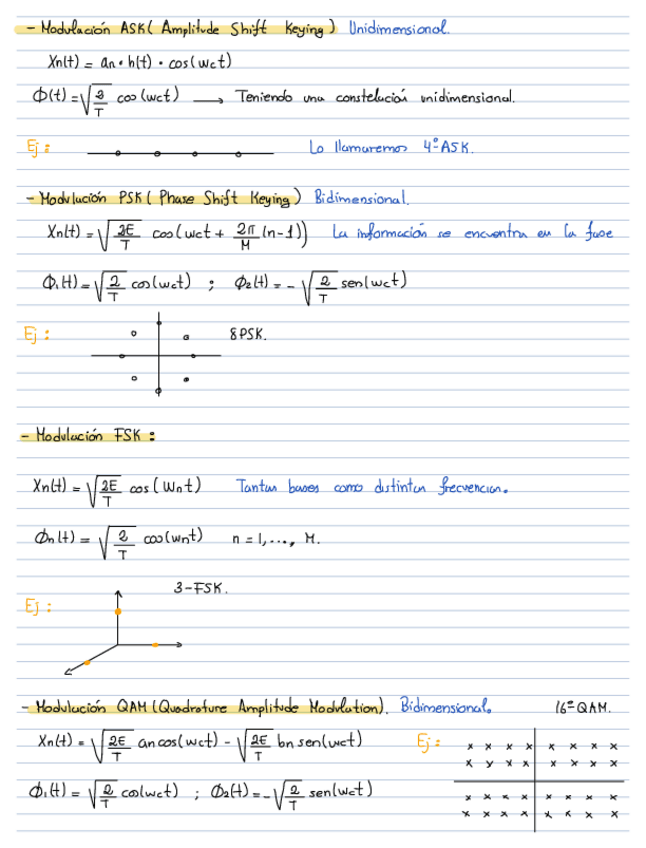 - Modulación ASK ( Amplitude Shift Keying ) Unidimensional.
Xn(t) = an · h(t) · cos(wct)
Φ(t) = √(2/T) cos(wct) ⟶ Teniendo una constelación unidimensional.
Ej : Lo llamaremos 4º ASK.
- Modulación PSK ( Phase Shift Keying ) Bidimensional.
Xn(t) = √(2E/T) cos(wct + 2π/M (n-1)) La información se encuentra en la fase
Φ₁(t) = √(2/T) cos(wct) ; Φ₂(t) = - √(2/T) sen(wct)
Ej : 8PSK.
- Modulación FSK :
Xn(t) = √(2E/T) cos (Wnt) Tantas bases como distintas frecuencias.
Φn(t) = √(2/T) cos(wnt) n = 1,..., M.
3-FSK.
Ej :
- Modulación QAM (Quadrature Amplitude Modulation). Bidimensional. 16º QAM.
Xn(t) = √(2E/T) an cos(wct) - √(2E/T) bn sen(wct) Ej :
Φ₁(t) = √(2/T) cos(wct) ; Φ₂(t) = -√(2/T) sen(wct)